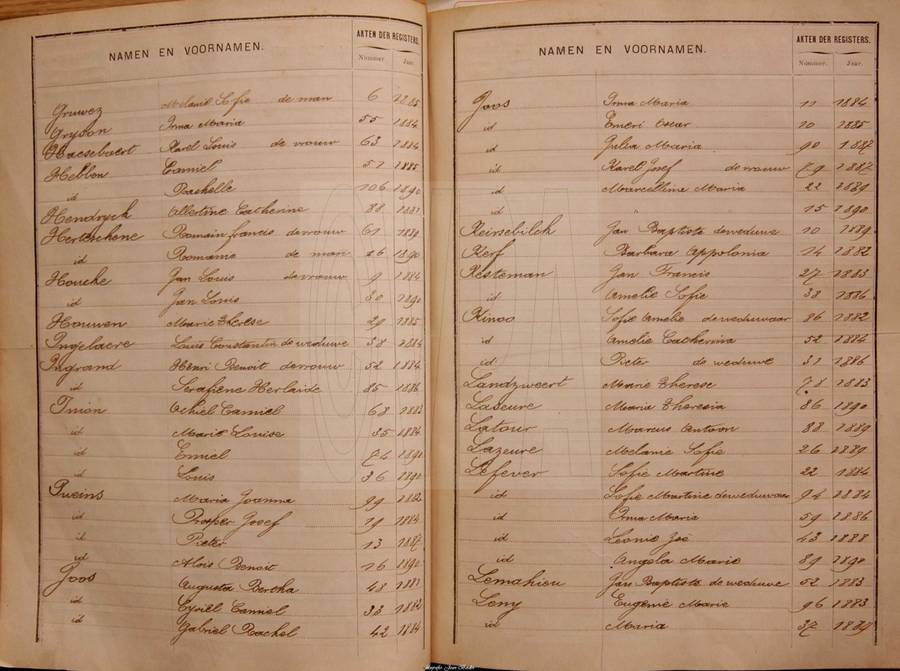 NAMEN EN VOORNAMEN. AKTEN DER REGISTERS.
Nummer. Jaar.
Gruwez Melanie Sofie de man 6 1885
Gryson Irma Maria 55 1884
Haesebaert Karel Louis de vrouw 63 1884
Hebben Camiel 51 1885
id Rachelle 106 1890
Hendryck Albertine Catherine 88 1881
Herteschene Romain francis de vrouw 61 1889
id Romanie de man 16 1890
Houcke Jan Louis de vrouw 9 1884
id Jan Louis 30 1890
Houwen Marie Therese 29 1885
Ingelaere Louis Constantin de weduwe 38 1884
Ingrand Henri Benoit de vrouw 52 1884
id Serafiene Herlaide 85 1886
Inion Achiel Camiel 68 1882
id Marie Louise 35 1884
id Emiel 74 1890
id Louis 36 1890
Iweins Maria Joanna 99 1882
id Prosper Josef 29 1884
id Pieter 13 1887
id Aloïs Benoit 16 1890
Joos Augusta Bertha 48 1882
id Cyriel Camiel 33 1882
id Gabriel Rachel 42 1884
NAMEN EN VOORNAMEN. AKTEN DER REGISTERS.
Nummer. Jaar.
Joos Irma Maria 11 1884
id Emeri Oscar 10 1885
id Julia Maria 90 1887
id Karel Josef de vrouw 79 1887
id Marcelline Maria 22 1889
id " 15 1890
Keirsebilck Jan Baptiste de weduwe 10 1889
Kerf Barbara Appolonia 14 1882
Kesteman Jan Francis 27 1883
id Amelie Sofie 38 1886
Kinoo Sofie Amelie de weduwaar 86 1882
id Amelie Catherina 52 1884
id Pieter de weduwe 31 1886
Landzweert Marie Therese 78 1883
Laseure Maria Theresia 86 1890
Latour Marcus Antoon 88 1889
Lazeure Melanie Sofie 26 1889
Lefever Sofie Martine 22 1884
id Sofie Martine de weduwaar 94 1884
id Irma Maria 59 1886
id Leonie Zoë 43 1888
id Angela Marie 89 1890
Lemahieu Jan Baptiste de weduwe 52 1883
Leny Eugenie Marie 96 1883
id Maria 37 1889